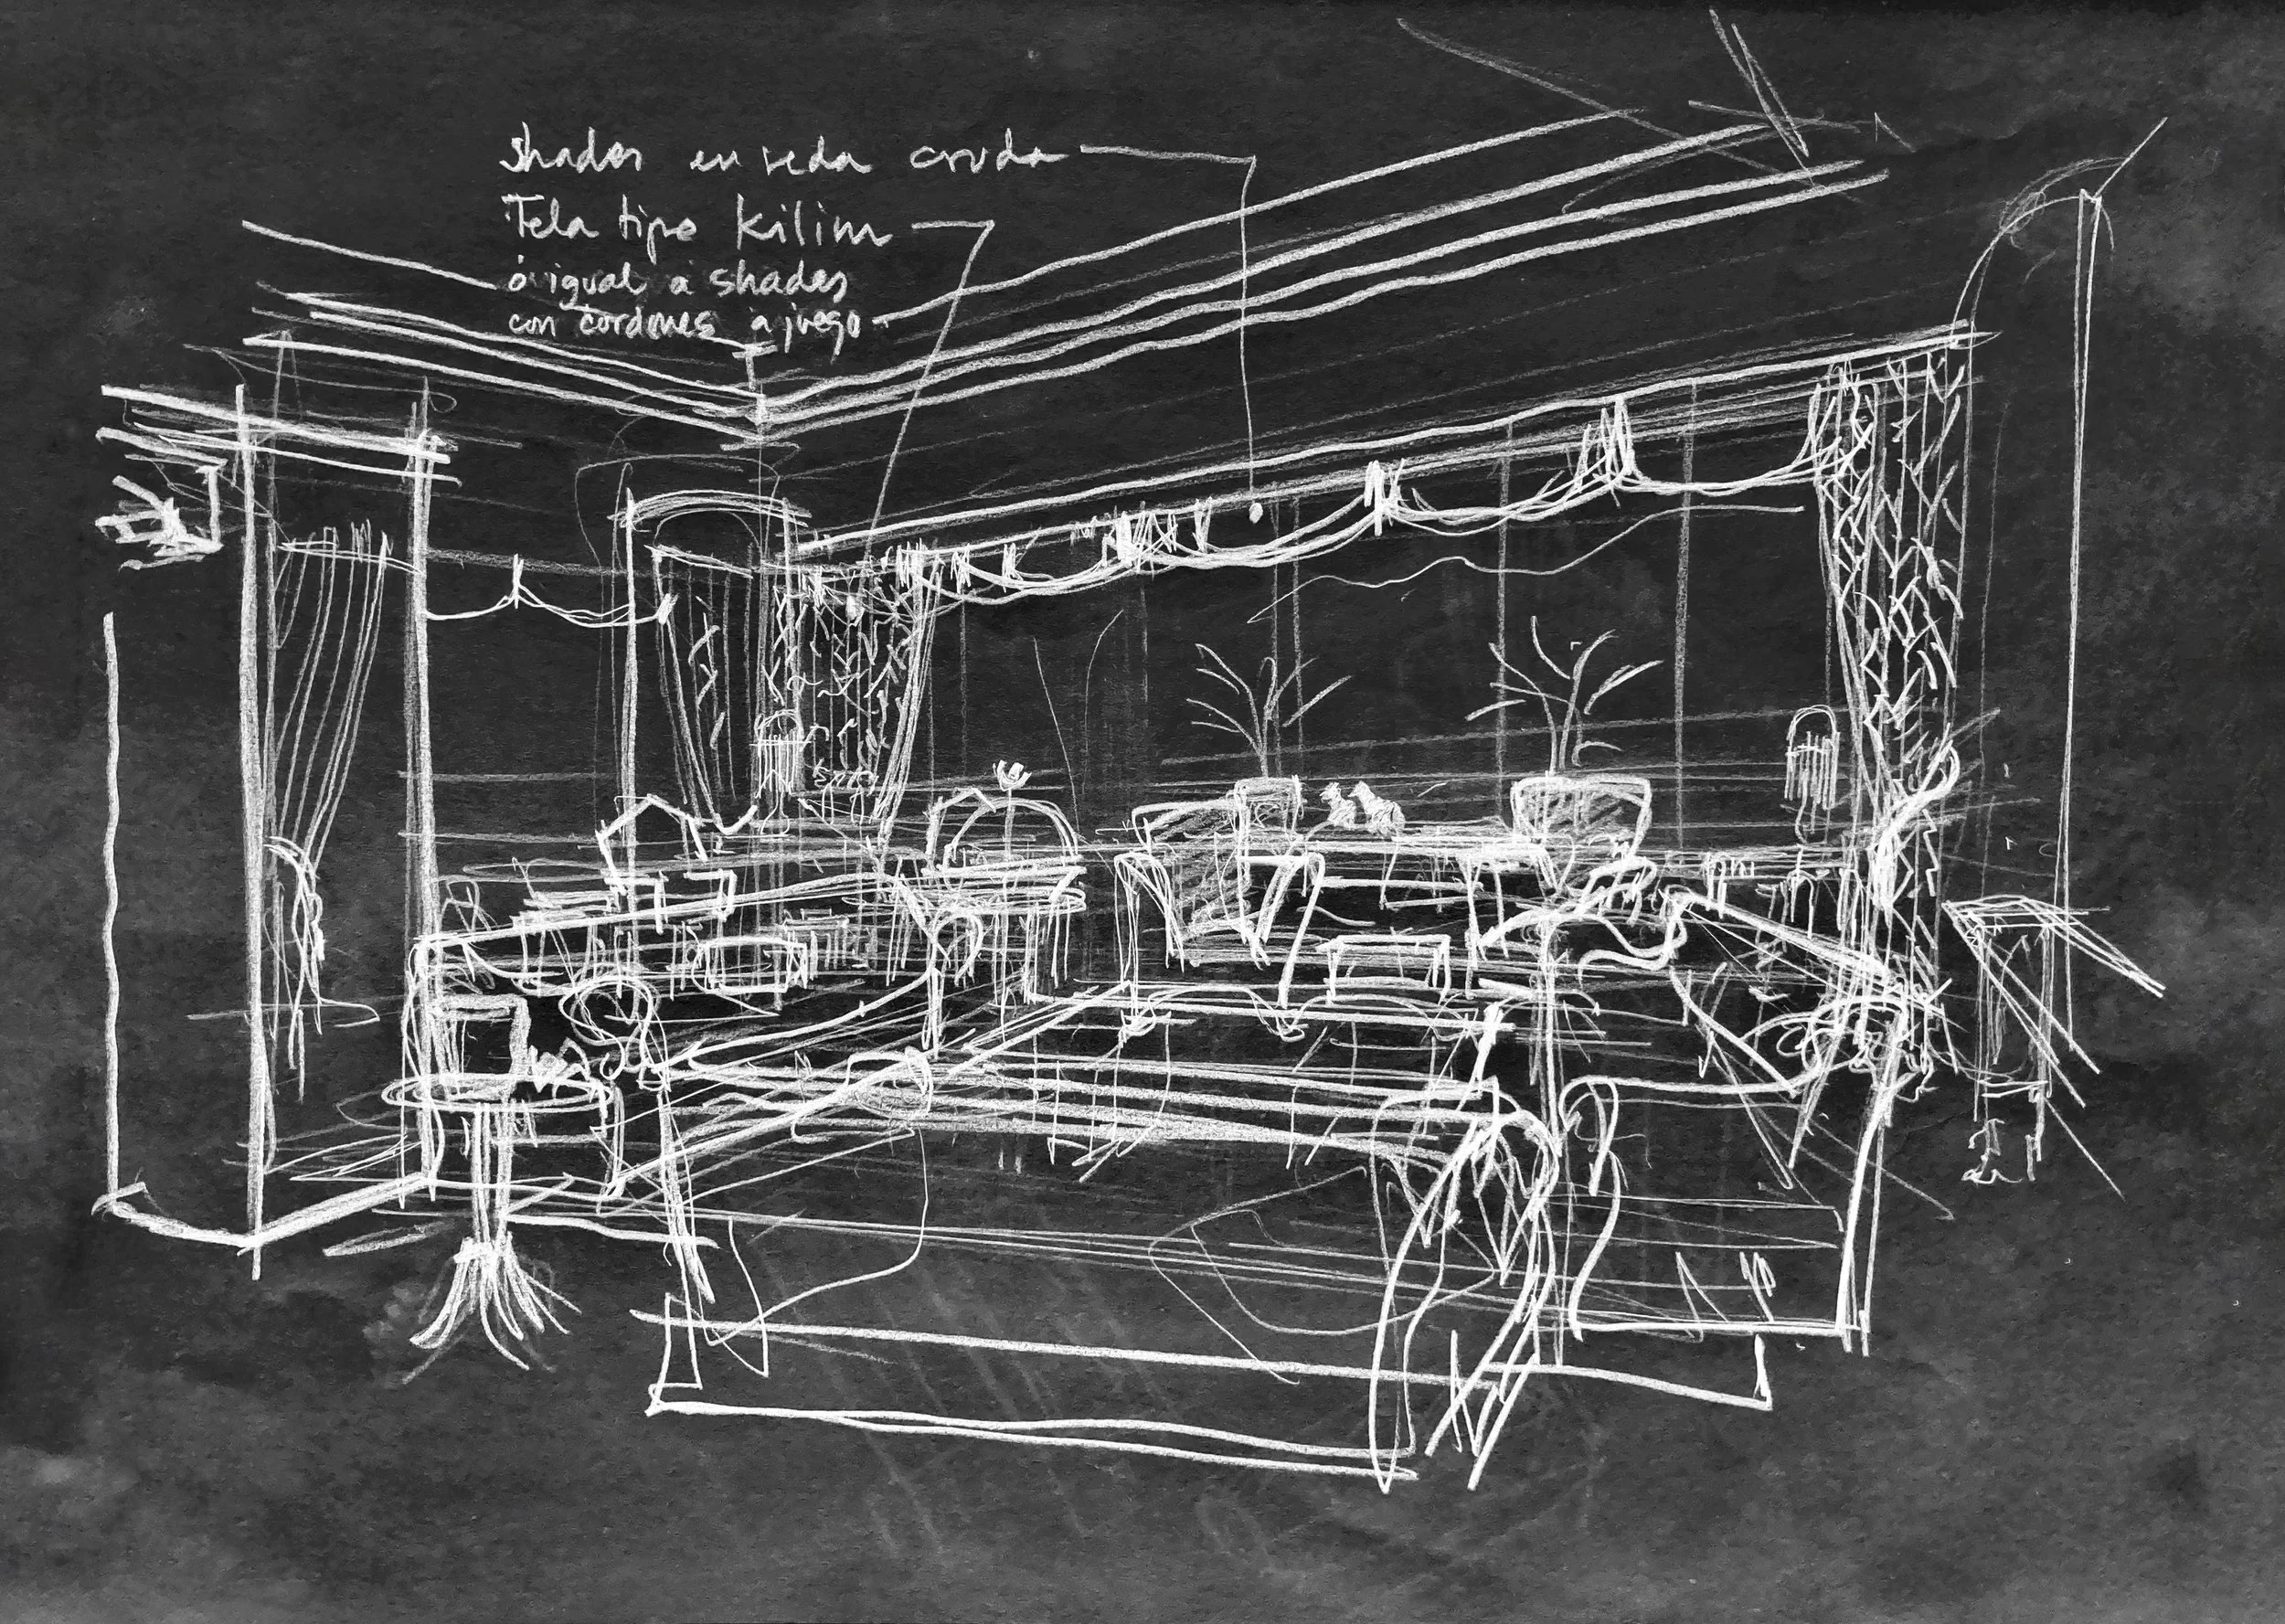 shades en seda cruda
Tela tipo Kilim
ó igual a shades
con cordones a juego